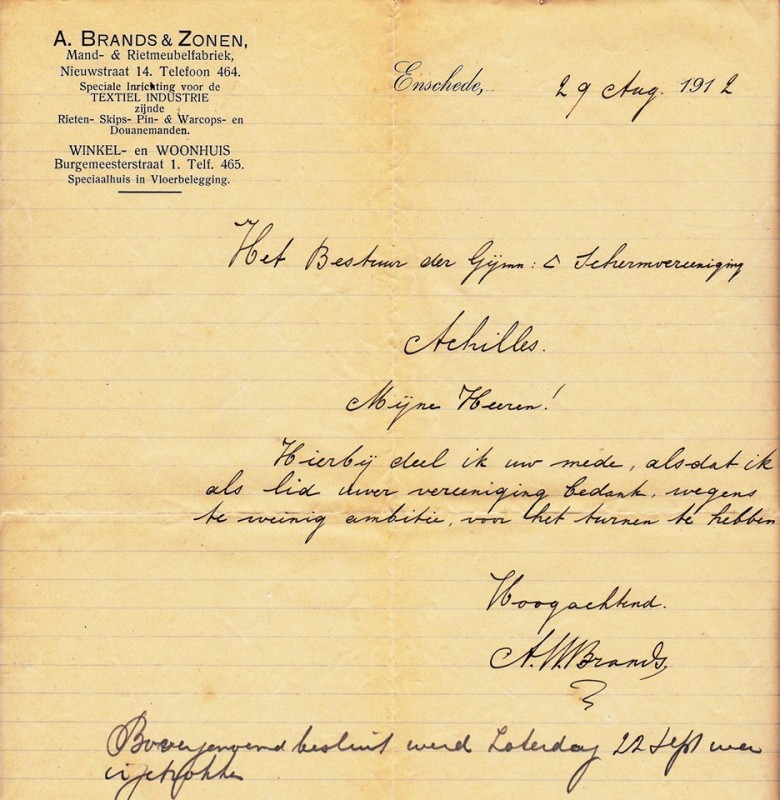 A. BRANDS & ZONEN,
Mand- & Rietmeubelfabriek,
Nieuwstraat 14. Telefoon 464.
Speciale Inrichting voor de
TEXTIEL INDUSTRIE
zijnde
Rieten- Skips- Pin- & Warcops- en
Douanemanden.
WINKEL- en WOONHUIS
Burgemeesterstraat 1. Telf. 465.
Speciaalhuis in Vloerbelegging.
Enschede, 29 Aug. 1912
Het Bestuur der Gijmn: & Schermvereeniging
Achilles.
Mijne Heeren!
Hierbij deel ik uw mede, alsdat ik
als lid uwer vereeniging bedank, wegens
te weinig ambitie, voor het turnen te hebben
Hoogachtend.
A.W.Brands,
Bovengenoemd besluit werd Zaterdag 22 Sept weer
ingetrokken